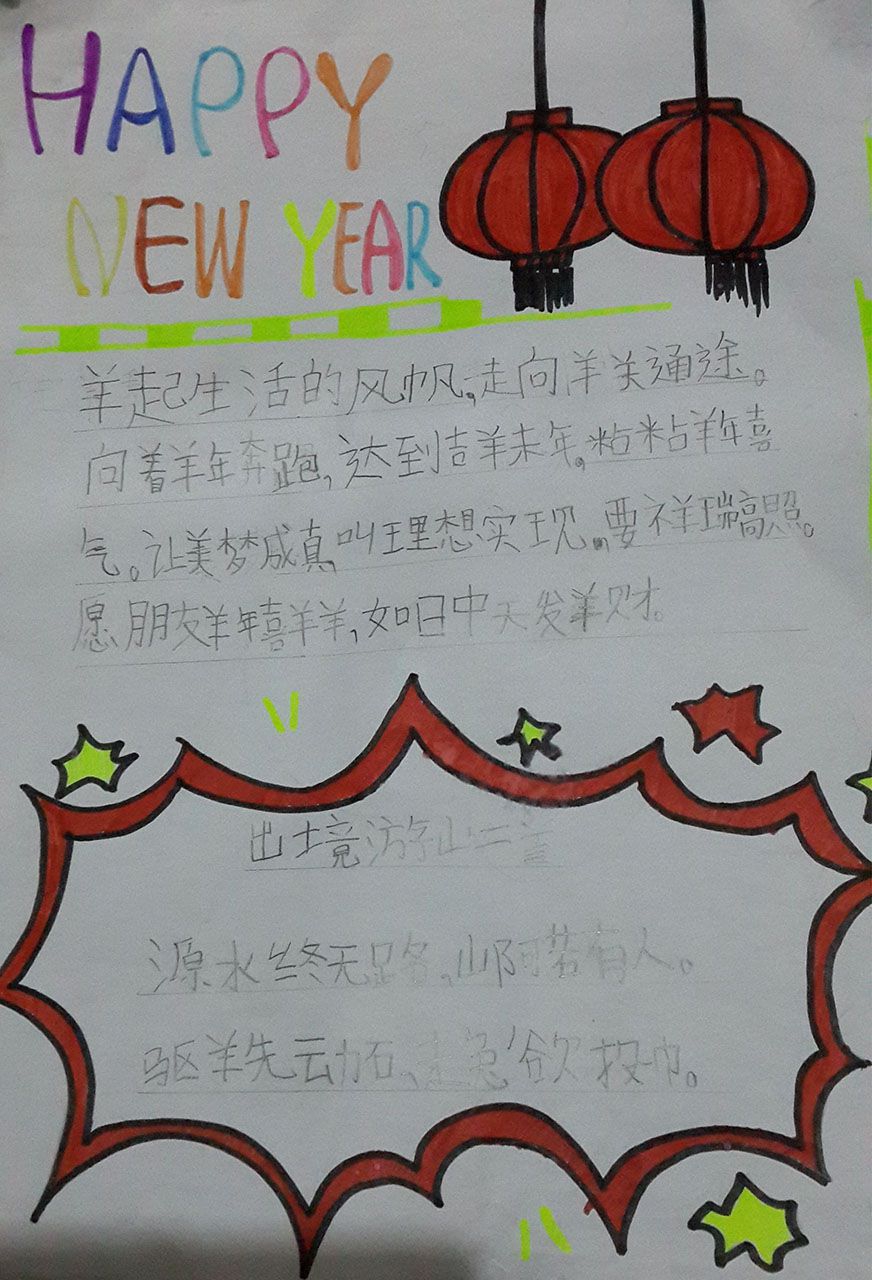 HAPPY
NEW YEAR
羊起生活的风帆，走向羊关通途。
向着羊年奔跑，达到吉羊未年，粘粘羊年喜
气。让美梦成真，叫理想实现，要祥瑞高照。
愿朋友羊年喜羊羊，如日中天发羊财。
出境游山二首
源水终无路，山阿若有人。
驱羊先动石，走兔欲投巾。